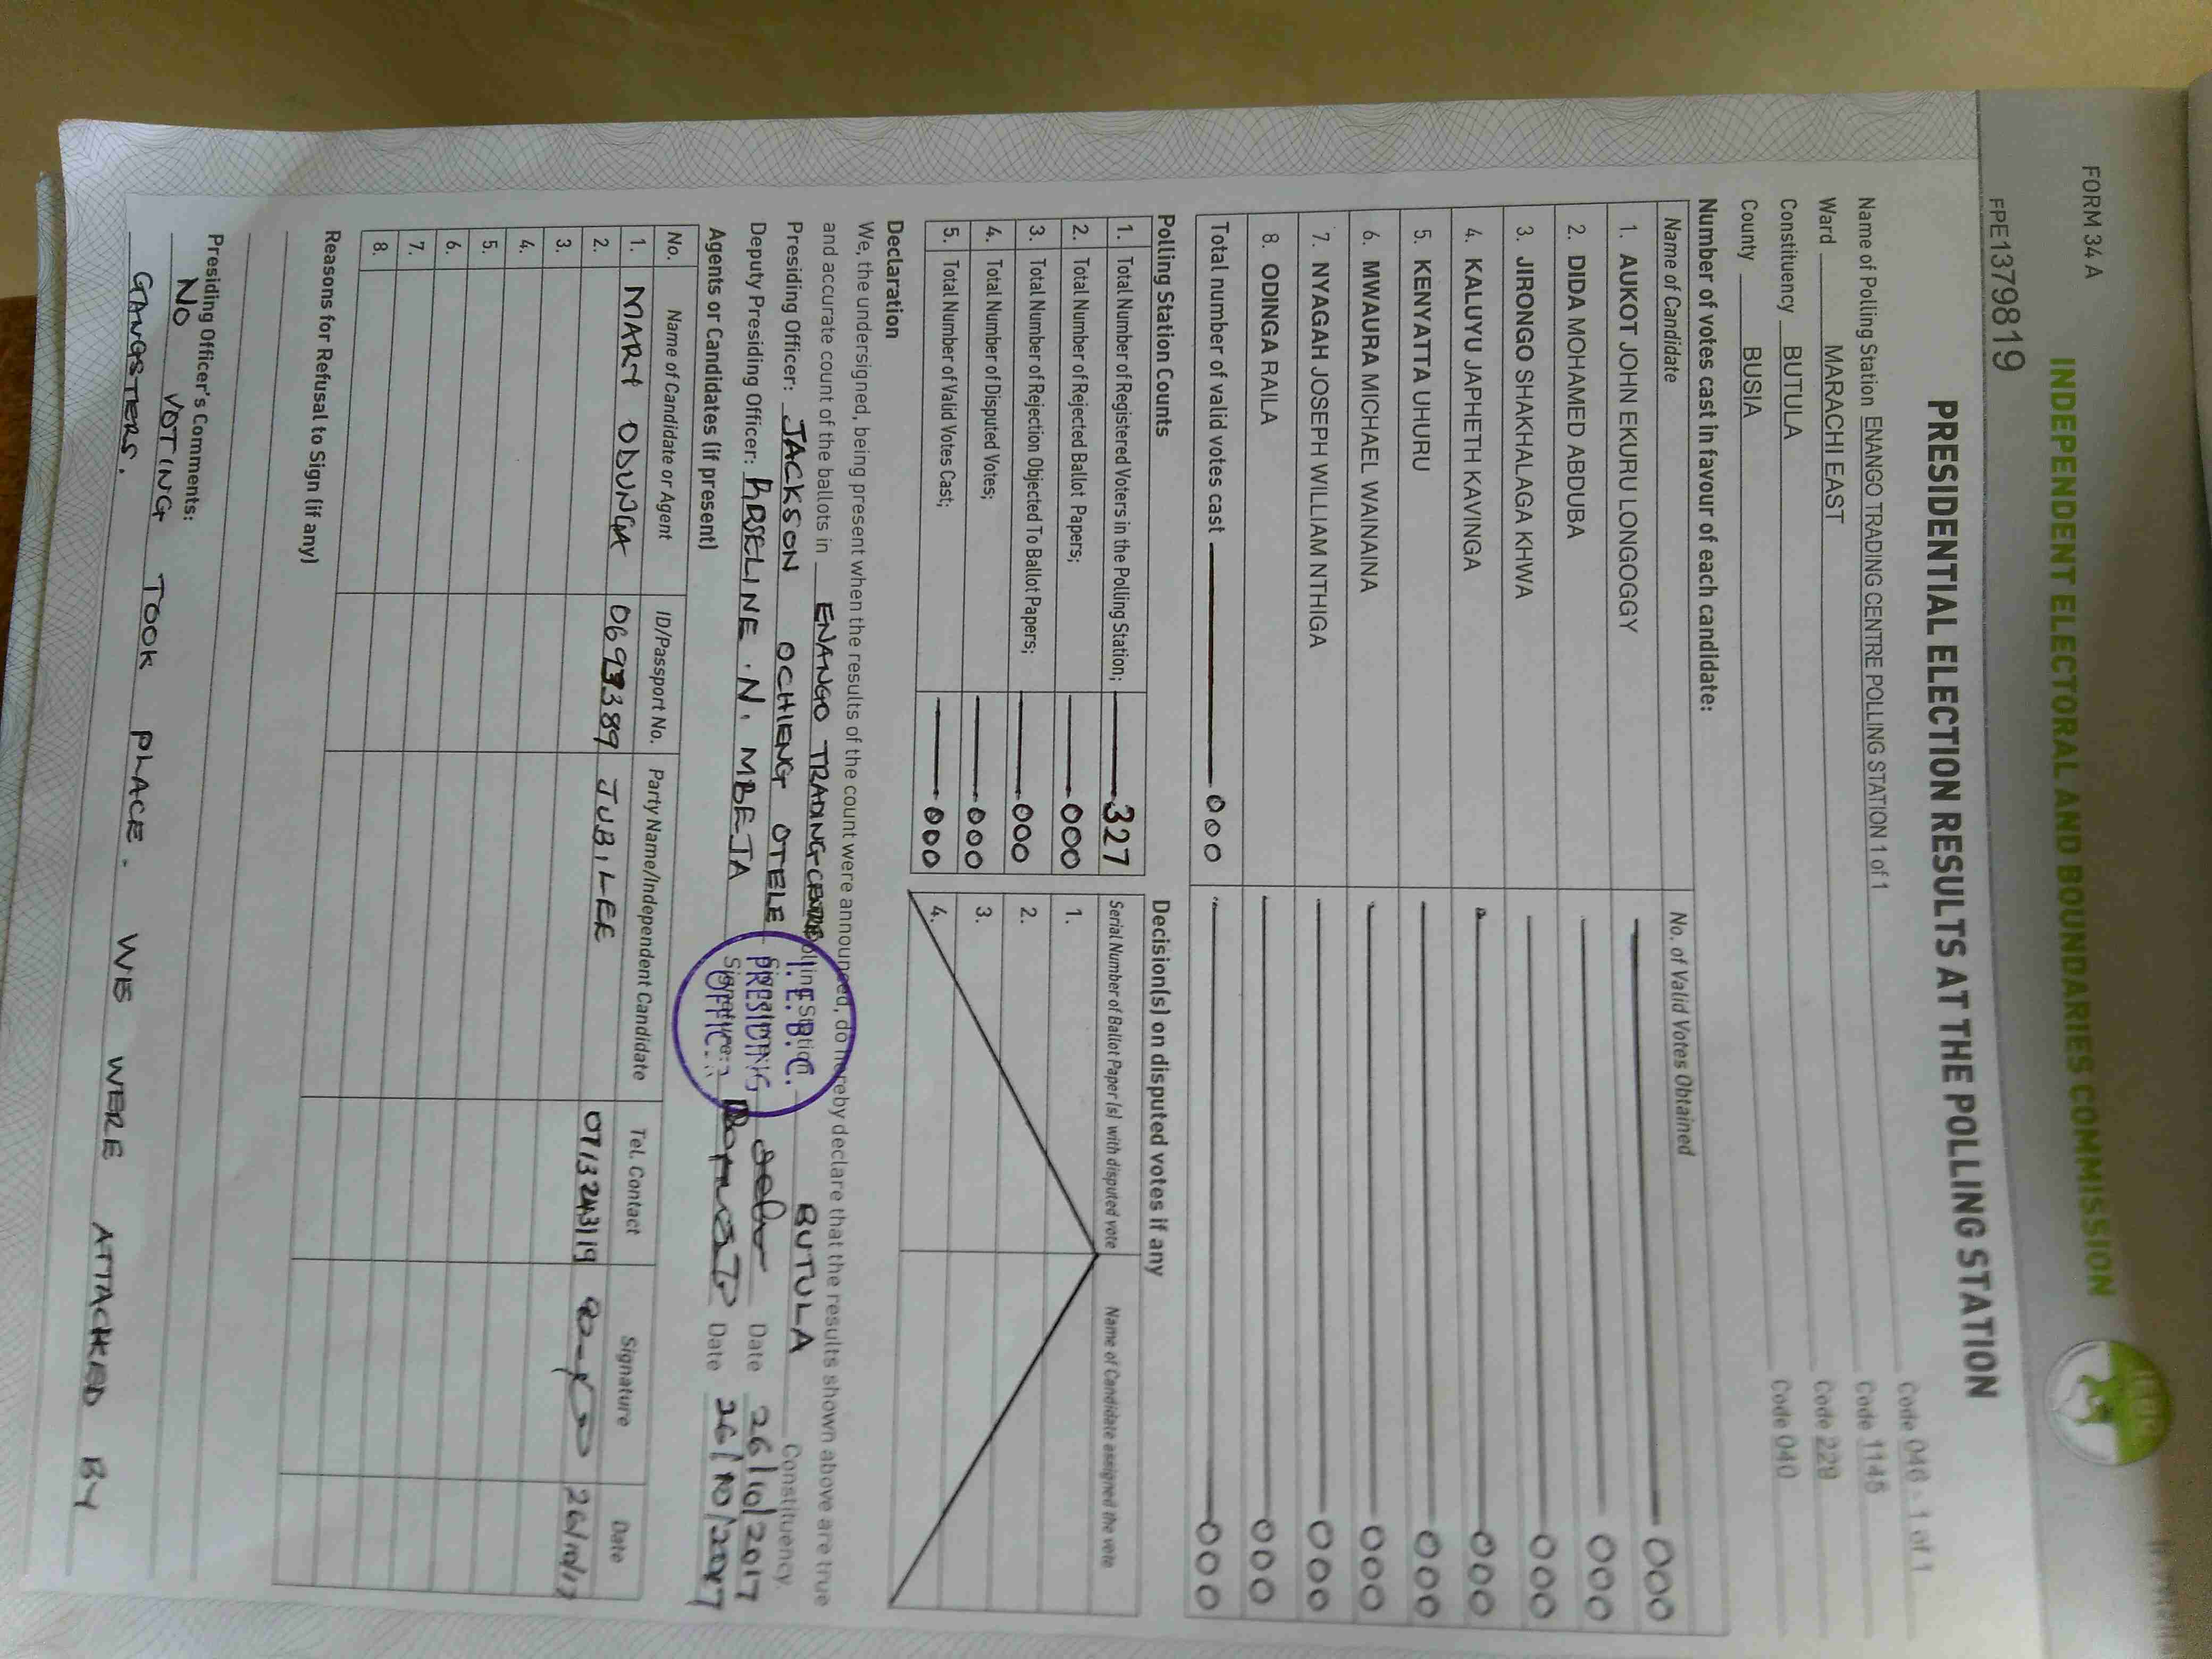 FORM 34 A
INDEPENDENT ELECTORAL AND BOUNDARIES COMMISSION
IEBC
FPE1379819
PRESIDENTIAL ELECTION RESULTS AT THE POLLING STATION
Code 046 - 1 of 1
Name of Polling Station ENANGO TRADING CENTRE POLLING STATION 1 of 1
Code 1145
Ward MARACHI EAST
Code 229
Constituency BUTULA
Code 040
County BUSIA
Number of votes cast in favour of each candidate:
Name of Candidate No. of Valid Votes Obtained
1. AUKOT JOHN EKURU LONGOGGY 000
2. DIDA MOHAMED ABDUBA 000
3. JIRONGO SHAKHALAGA KHWA 000
4. KALUYU JAPHETH KAVINGA 000
5. KENYATTA UHURU 000
6. MWAURA MICHAEL WAINAINA 000
7. NYAGAH JOSEPH WILLIAM NTHIGA 000
8. ODINGA RAILA 000
Total number of valid votes cast 000 000
Polling Station Counts
1. Total Number of Registered Voters in the Polling Station; 327
2. Total Number of Rejected Ballot Papers; 000
3. Total Number of Rejection Objected To Ballot Papers; 000
4. Total Number of Disputed Votes; 000
5. Total Number of Valid Votes Cast; 000
Decision(s) on disputed votes if any
Serial Number of Ballot Paper (s) with disputed vote Name of Candidate assigned the vote
1.
2.
3.
4.
Declaration
We, the undersigned, being present when the results of the count were announced, do hereby declare that the results shown above are true
and accurate count of the ballots in ENANGO TRADING CENTRE Polling Station BUTULA Constituency.
Presiding Officer: JACKSON OCHIENG OTELE Signature: Date 26/10/2017
Deputy Presiding Officer: MBETA Signature: Date 26/10/2017
I.E.B.C.
PRESIDING
OFFICER
Agents or Candidates (if present)
No. Name of Candidate or Agent ID/Passport No. Party Name/Independent Candidate Tel. Contact Signature Date
1. MARY ODUNGA 06933389 JUBILEE 0713243119 26/10/17
2.
3.
4.
5.
6.
7.
8.
Reasons for Refusal to Sign (if any)
Presiding Officer's Comments:
NO VOTING TOOK PLACE. WE WERE ATTACKED BY
GANGSTERS.